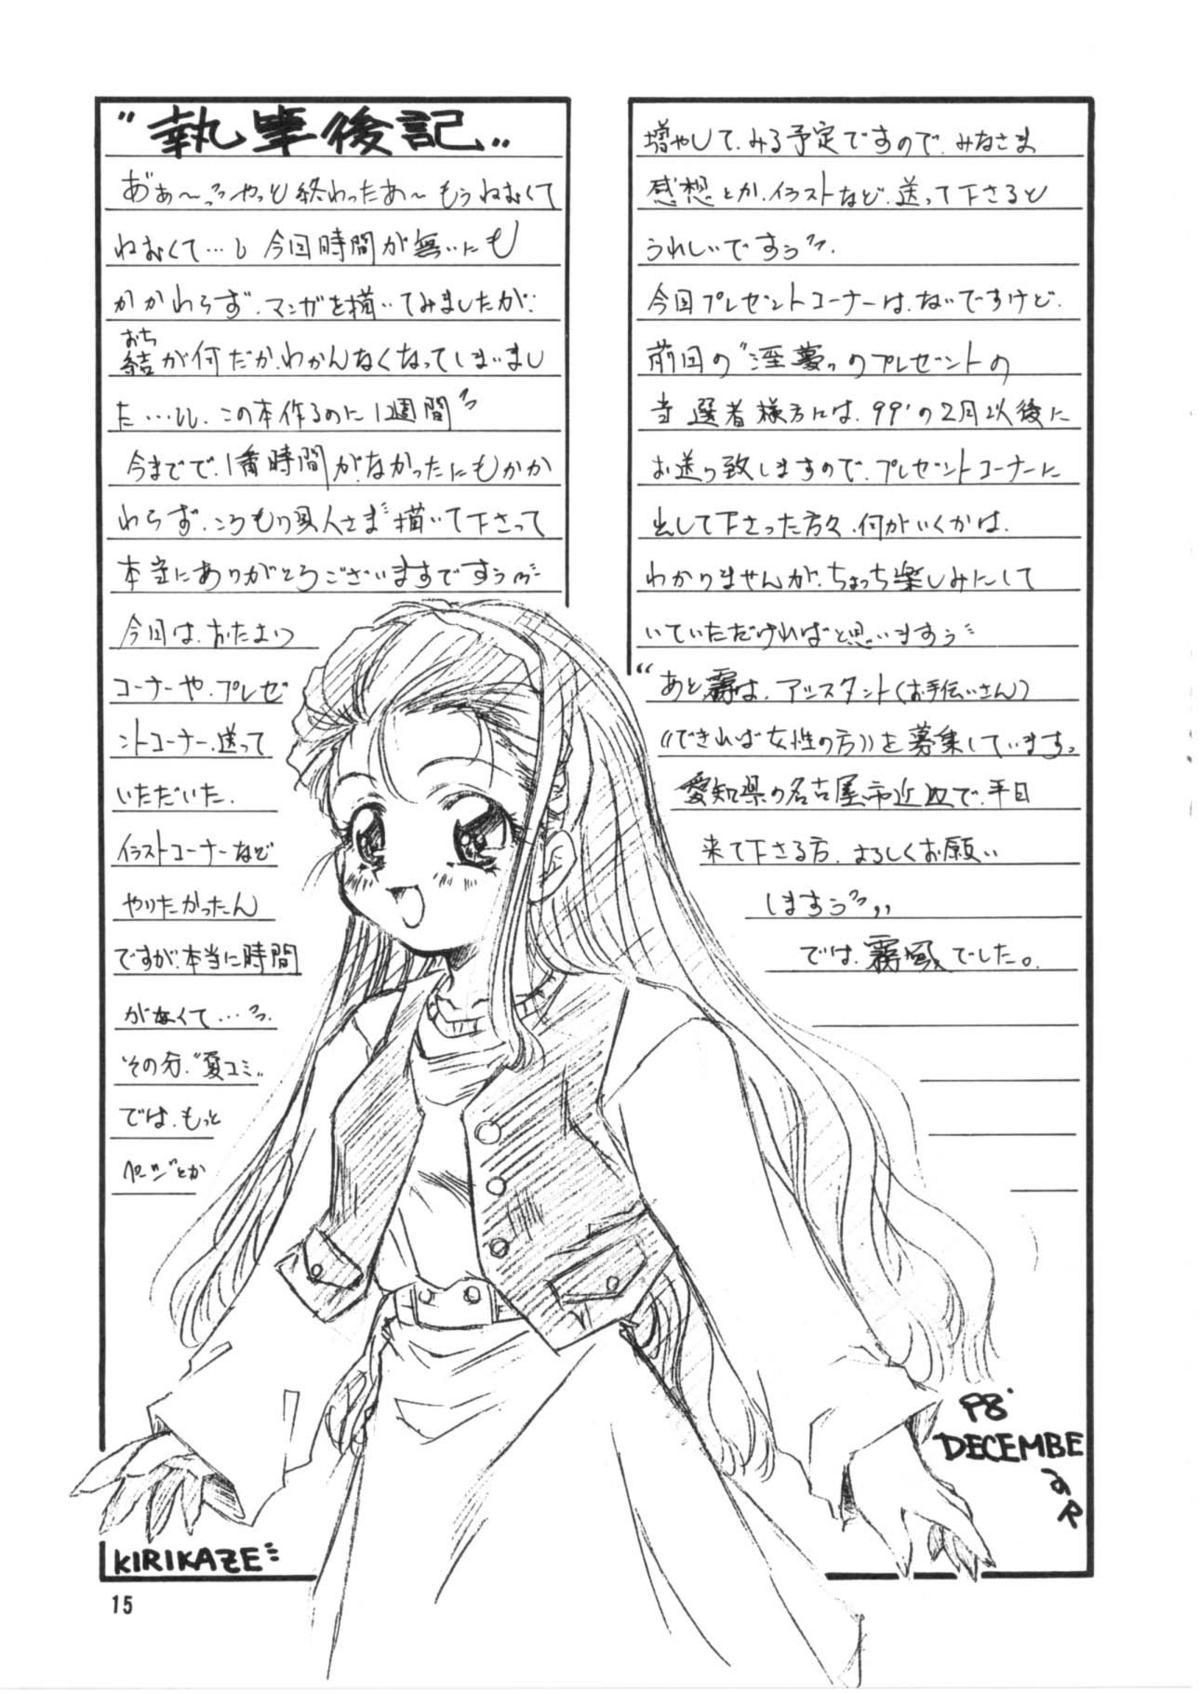 "執筆後記"
あ゛ぁ〜っやっと終わったあ〜もうねむくて
ねむくて…し 今回時間が無いにも
かかわらず、マンガを描いてみましたが、
結が何だか、わかんなくなってしまいまし
おち
た…し、この本作るのに1週間
今までで、1番時間がなかったにもかか
わらず、ころもり兵人さま描いて下さって
本当にありがとうございますですうっ
今回は、おたより
コーナーや、プレゼ
ントコーナー、送って
いただいた、
イラストコーナーなど
やりたかったん
ですが、本当に時間
がなくて…っ
その分、"夏コミ"
では、もっと
ページとか
増やして、みる予定ですので、みなさま
感想とか、イラストなど、送って下さると
うれしいですぅっ
今回プレゼントコーナーは、ないですけど、
前回の"淫夢"のプレゼントの
当選者様方には、99'の2月以後に
お送り致しますので、プレゼントコーナーに
出して下さった方々、何がいくかは、
わかりませんが、ちょっち楽しみにして
いていただければと思いますぅ
"あと霧は、アシスタント(お手伝いさん)
《できれば女性の方》を募集しています。
愛知県の名古屋市近辺で、平日
来て下さる方、よろしくお願い
しますぅっ"
では、霧風でした。
98'
DECEMBE
R
KIRIKAZE
15